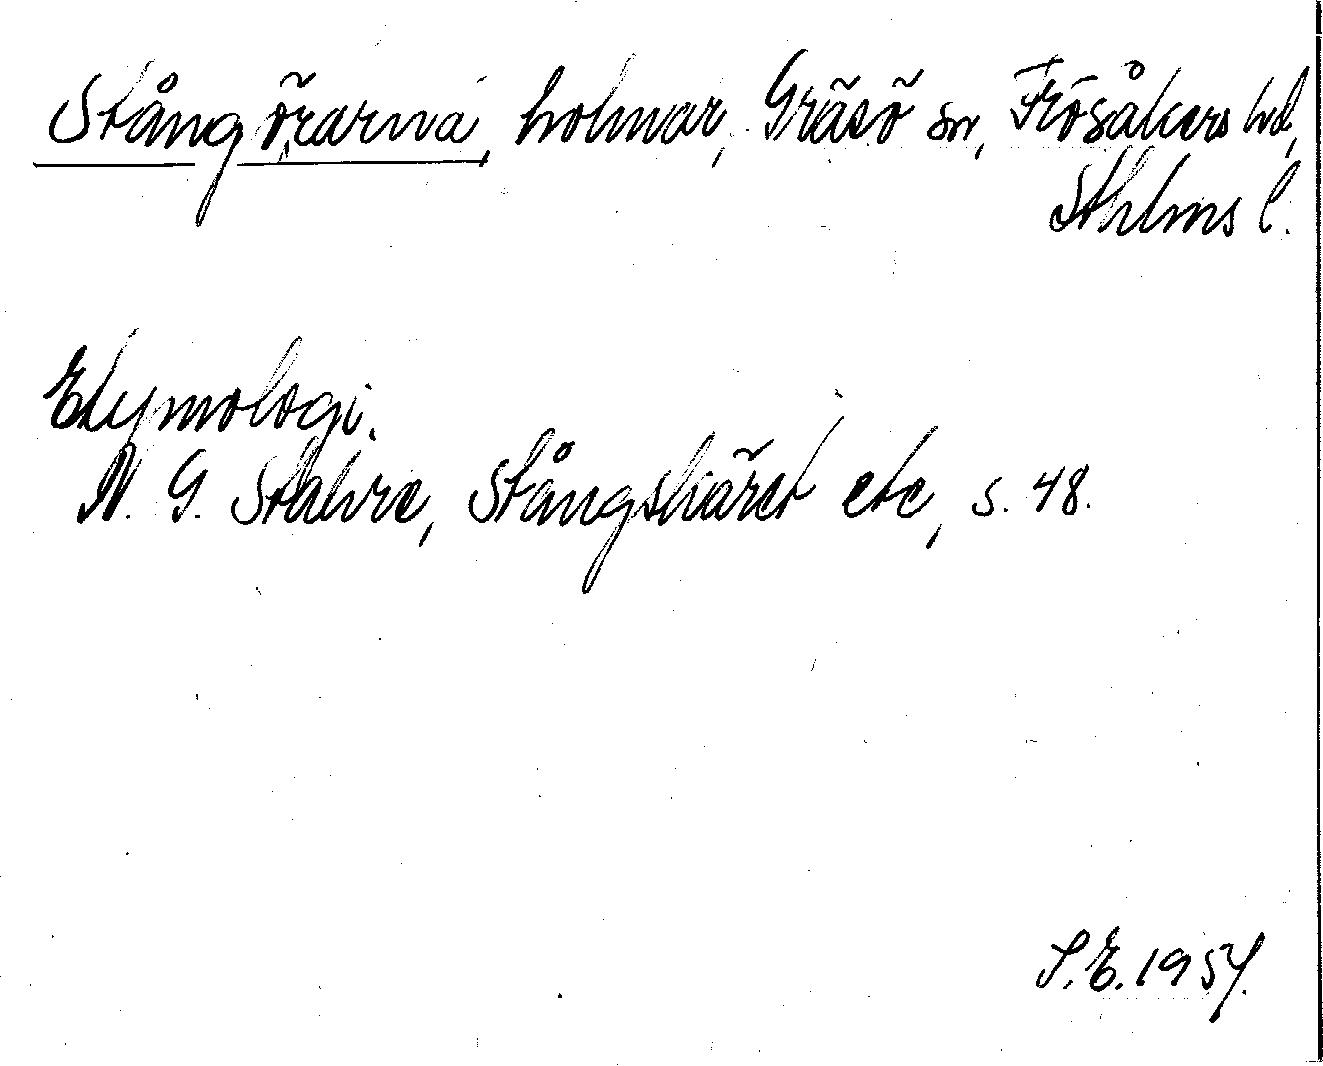 Stångörarna, holmar, Gräsö sn, Frösåkers hd,
Sthlms l.
Etymologi.
N. G. Stahre, Stångskäret etc, s. 48.
S.E. 1957.